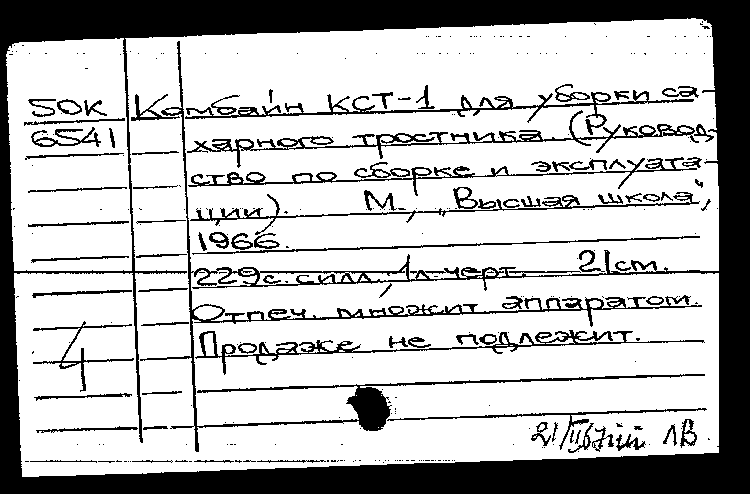 50К Комбайн КСТ-1 для уборки са-
6541 харного тростника. (Руковод-
ство по сборке и эксплуата-
ции). М., "Высшая школа",
1966.
229с. силл., 1л. черт. 21cm.
Отпеч. множит. аппаратом.
Продаже не подлежит.
4
21/III67 ЛВ